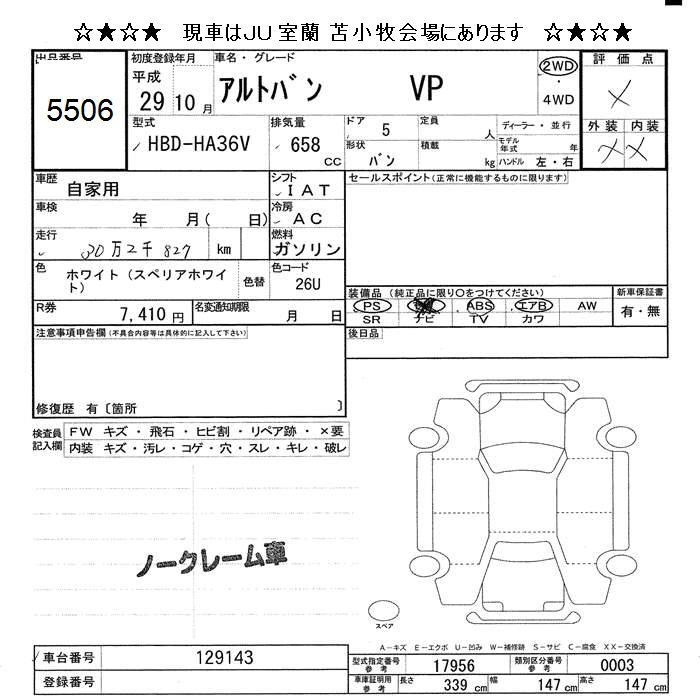 ☆★☆★ 現車はJU室蘭 苫小牧会場にあります ☆★☆★
出品番号 初度登録年月 車名・グレード 評価点
5506 平成 29 10月 アルトバン VP 2WD ・ 4WD ×
型式 排気量 ドア 定員 ディーラー・並行 外装 内装
HBD-HA36V 658 CC 5 人 モデル年式 年 × ×
形状 積載
バン kg ハンドル 左・右
車歴 シフト セールスポイント(正常に機能するものに限ります)
自家用 IAT
車検 冷房
年 月( 日) AC
走行 燃料
30万2千827 km ガソリン
色 色コード
ホワイト(スペリアホワイト) 色替 26U
装備品(純正品に限り○をつけてください) 新車保証書
R券 名変通知期限 PS ABS エアB AW 有・無
7,410円 月 日 SR ナビ TV カワ
注意事項申告欄(不具合内容等は具体的に記入して下さい) 後日品
修復歴 有〔箇所 〕
検査員記入欄 FW キズ・飛石・ヒビ割・リペア跡・×要
内装 キズ・汚レ・コゲ・穴・スレ・キレ・破レ
ノークレーム車
スペア
A-キズ E-エクボ U-凹み W-補修跡 S-サビ C-腐食 XX-交換済
車台番号 129143 型式指定番号 参考 17956 類別区分番号 参考 0003
登録番号 車庫証明用 参考 長さ 339cm 幅 147cm 高さ 147cm